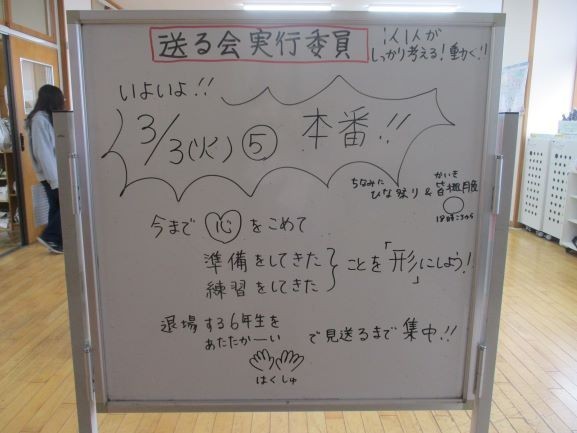 送る会実行委員
1人1人が
しっかり考える！動く！！
いよいよ！！
3/3(火)⑤ 本番！！
ちなみに かいき
ひな祭り & 皆既月食
18時ころから
今まで 心 をこめて
準備をしてきた
練習をしてきた
ことを「形」にしよう！
退場する6年生を
あたたかーい
はくしゅ
で見送るまで集中！！